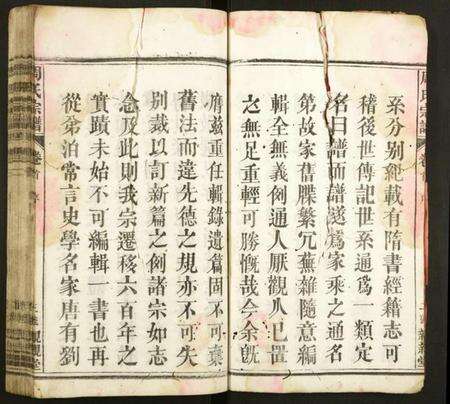 周氏宗譜
卷首
序
系分別紀載有隋書經籍志可
稽後世傳記世系通爲一類定
名曰譜而譜遂爲家乘之通名
第故家舊牒繁冗蕪雜隨意編
輯全無義例通人厭觀人已置
之無足重輕可勝慨哉今余旣
膺茲重任輯錄遺篇固不可棄
舊法而違先德之規亦不可失
別裁以訂新篇之例諸宗如志
念及此則我宗遷移六百年之
實蹟未始不可編輯一書也再
從弟泊常言史學名家唐有劉
周氏宗譜
卷首
序